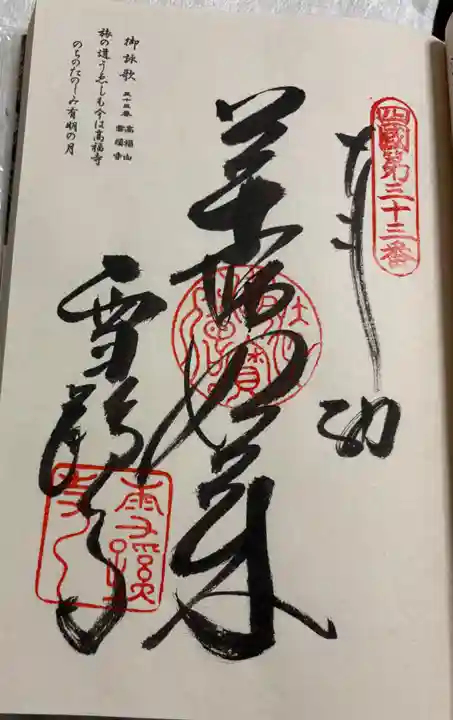 四國第三十三番
薬師如来
雪蹊寺
雪蹊寺
御詠歌 三十三番 高福山 雪蹊寺
旅の道うゑしも今は高福寺
のちのたのしみ有明の月